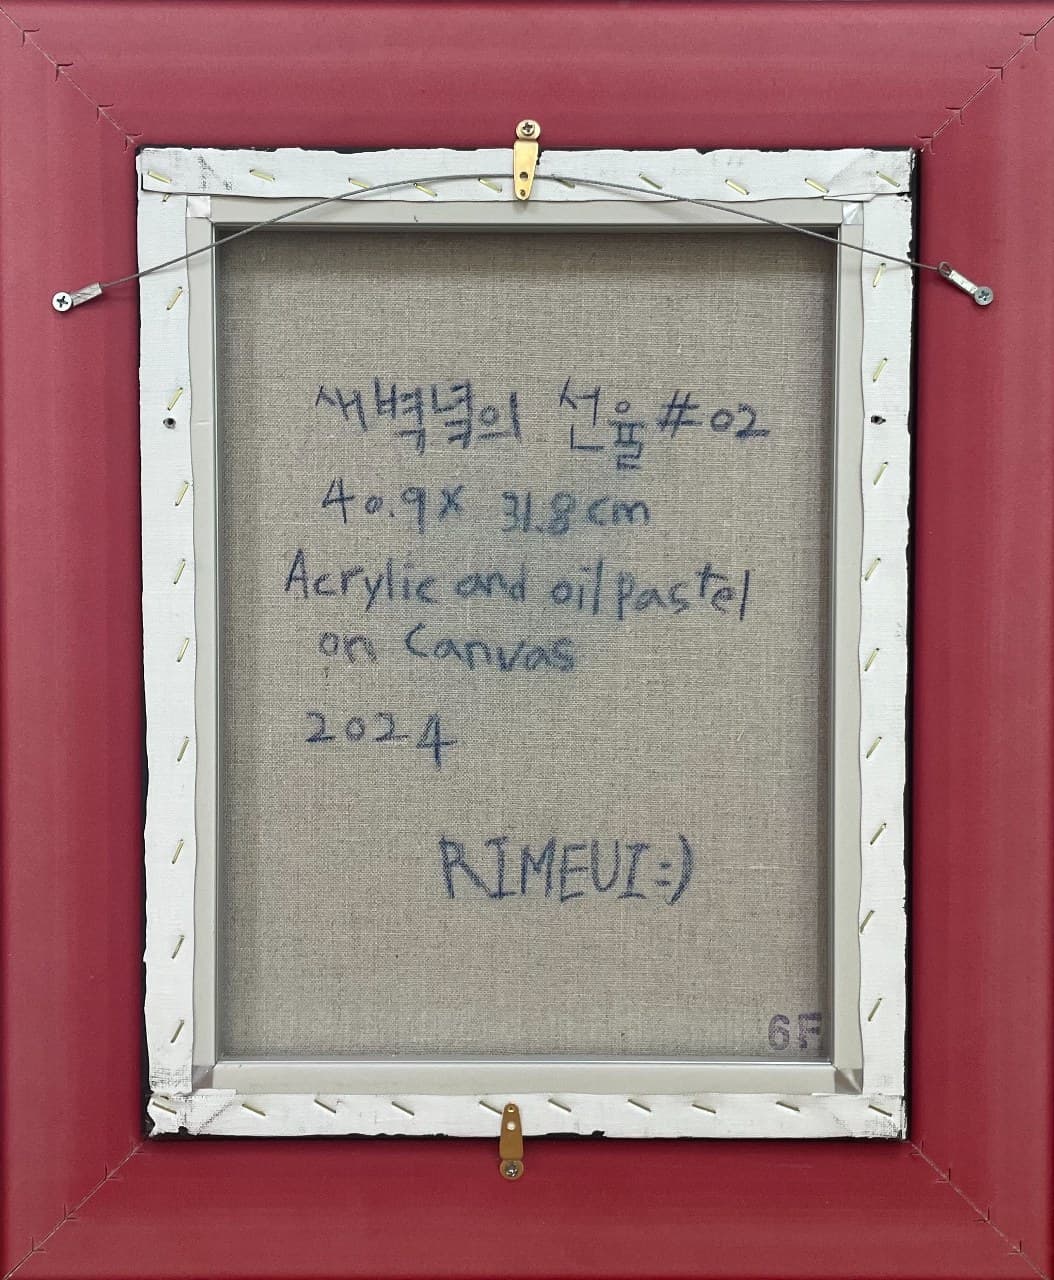 새벽녘의 선율 #02
40.9 x 31.8cm
Acrylic and oil pastel
on Canvas
2024
RIMEUI=)
6F